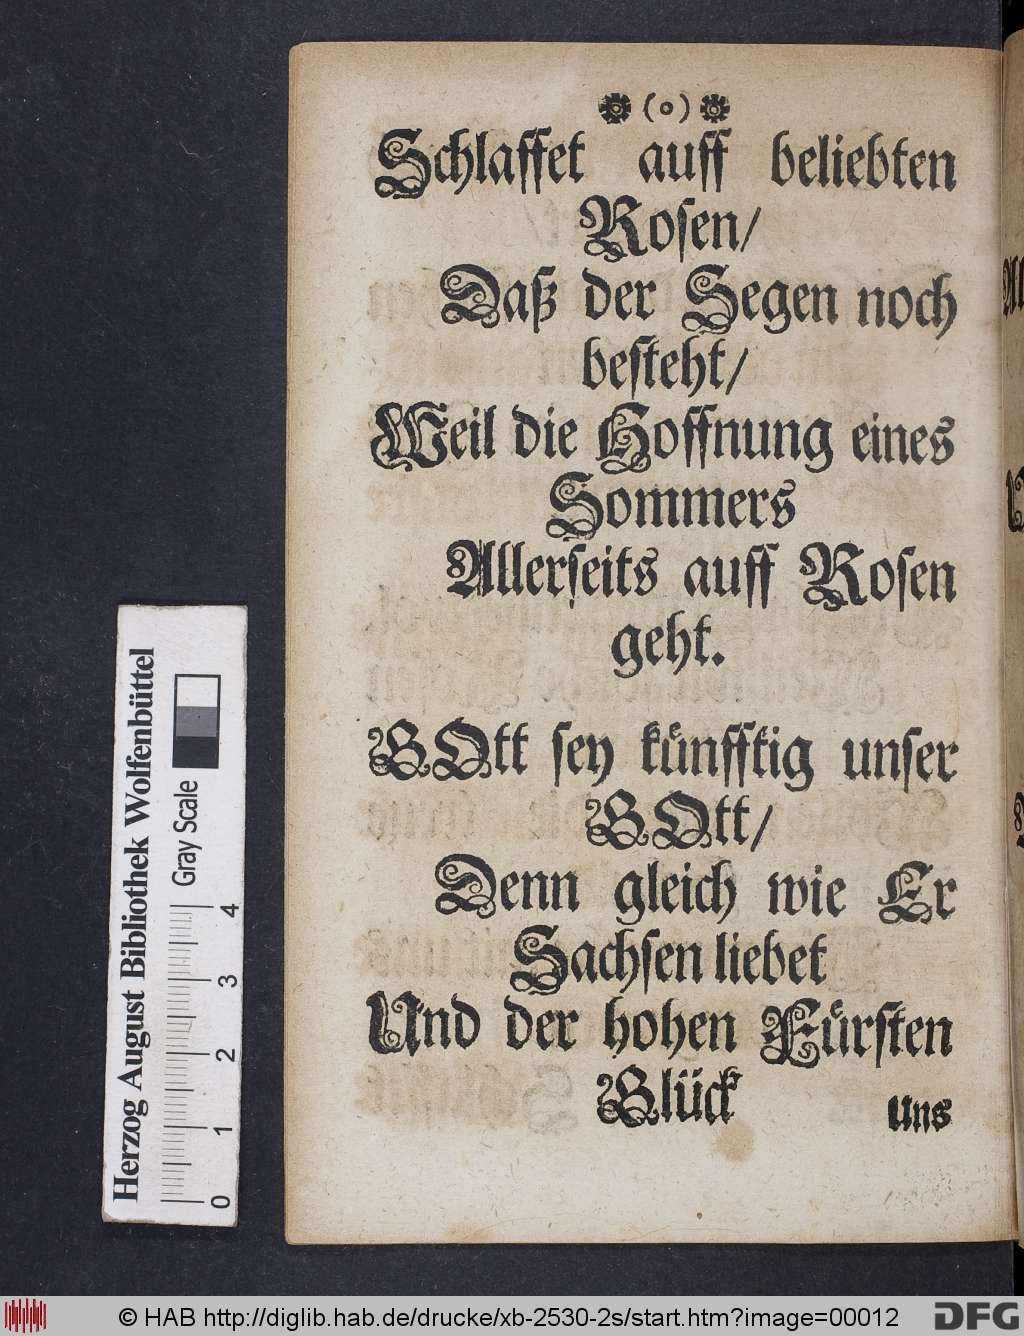 (o)
Schlaffet auff beliebten
Rosen/
Daß der Segen noch
besteht/
Weil die Hoffnung eines
Sommers
Allerseits auff Rosen
geht.
GOtt sey künfftig unser
GOtt/
Denn gleich wie Er
Sachsen liebet
Und der hohen Fürsten
Glück
uns
Herzog August Bibliothek Wolfenbüttel
Gray Scale
0 1 2 3 4
© HAB http://diglib.hab.de/drucke/xb-2530-2s/start.htm?image=00012
DFG